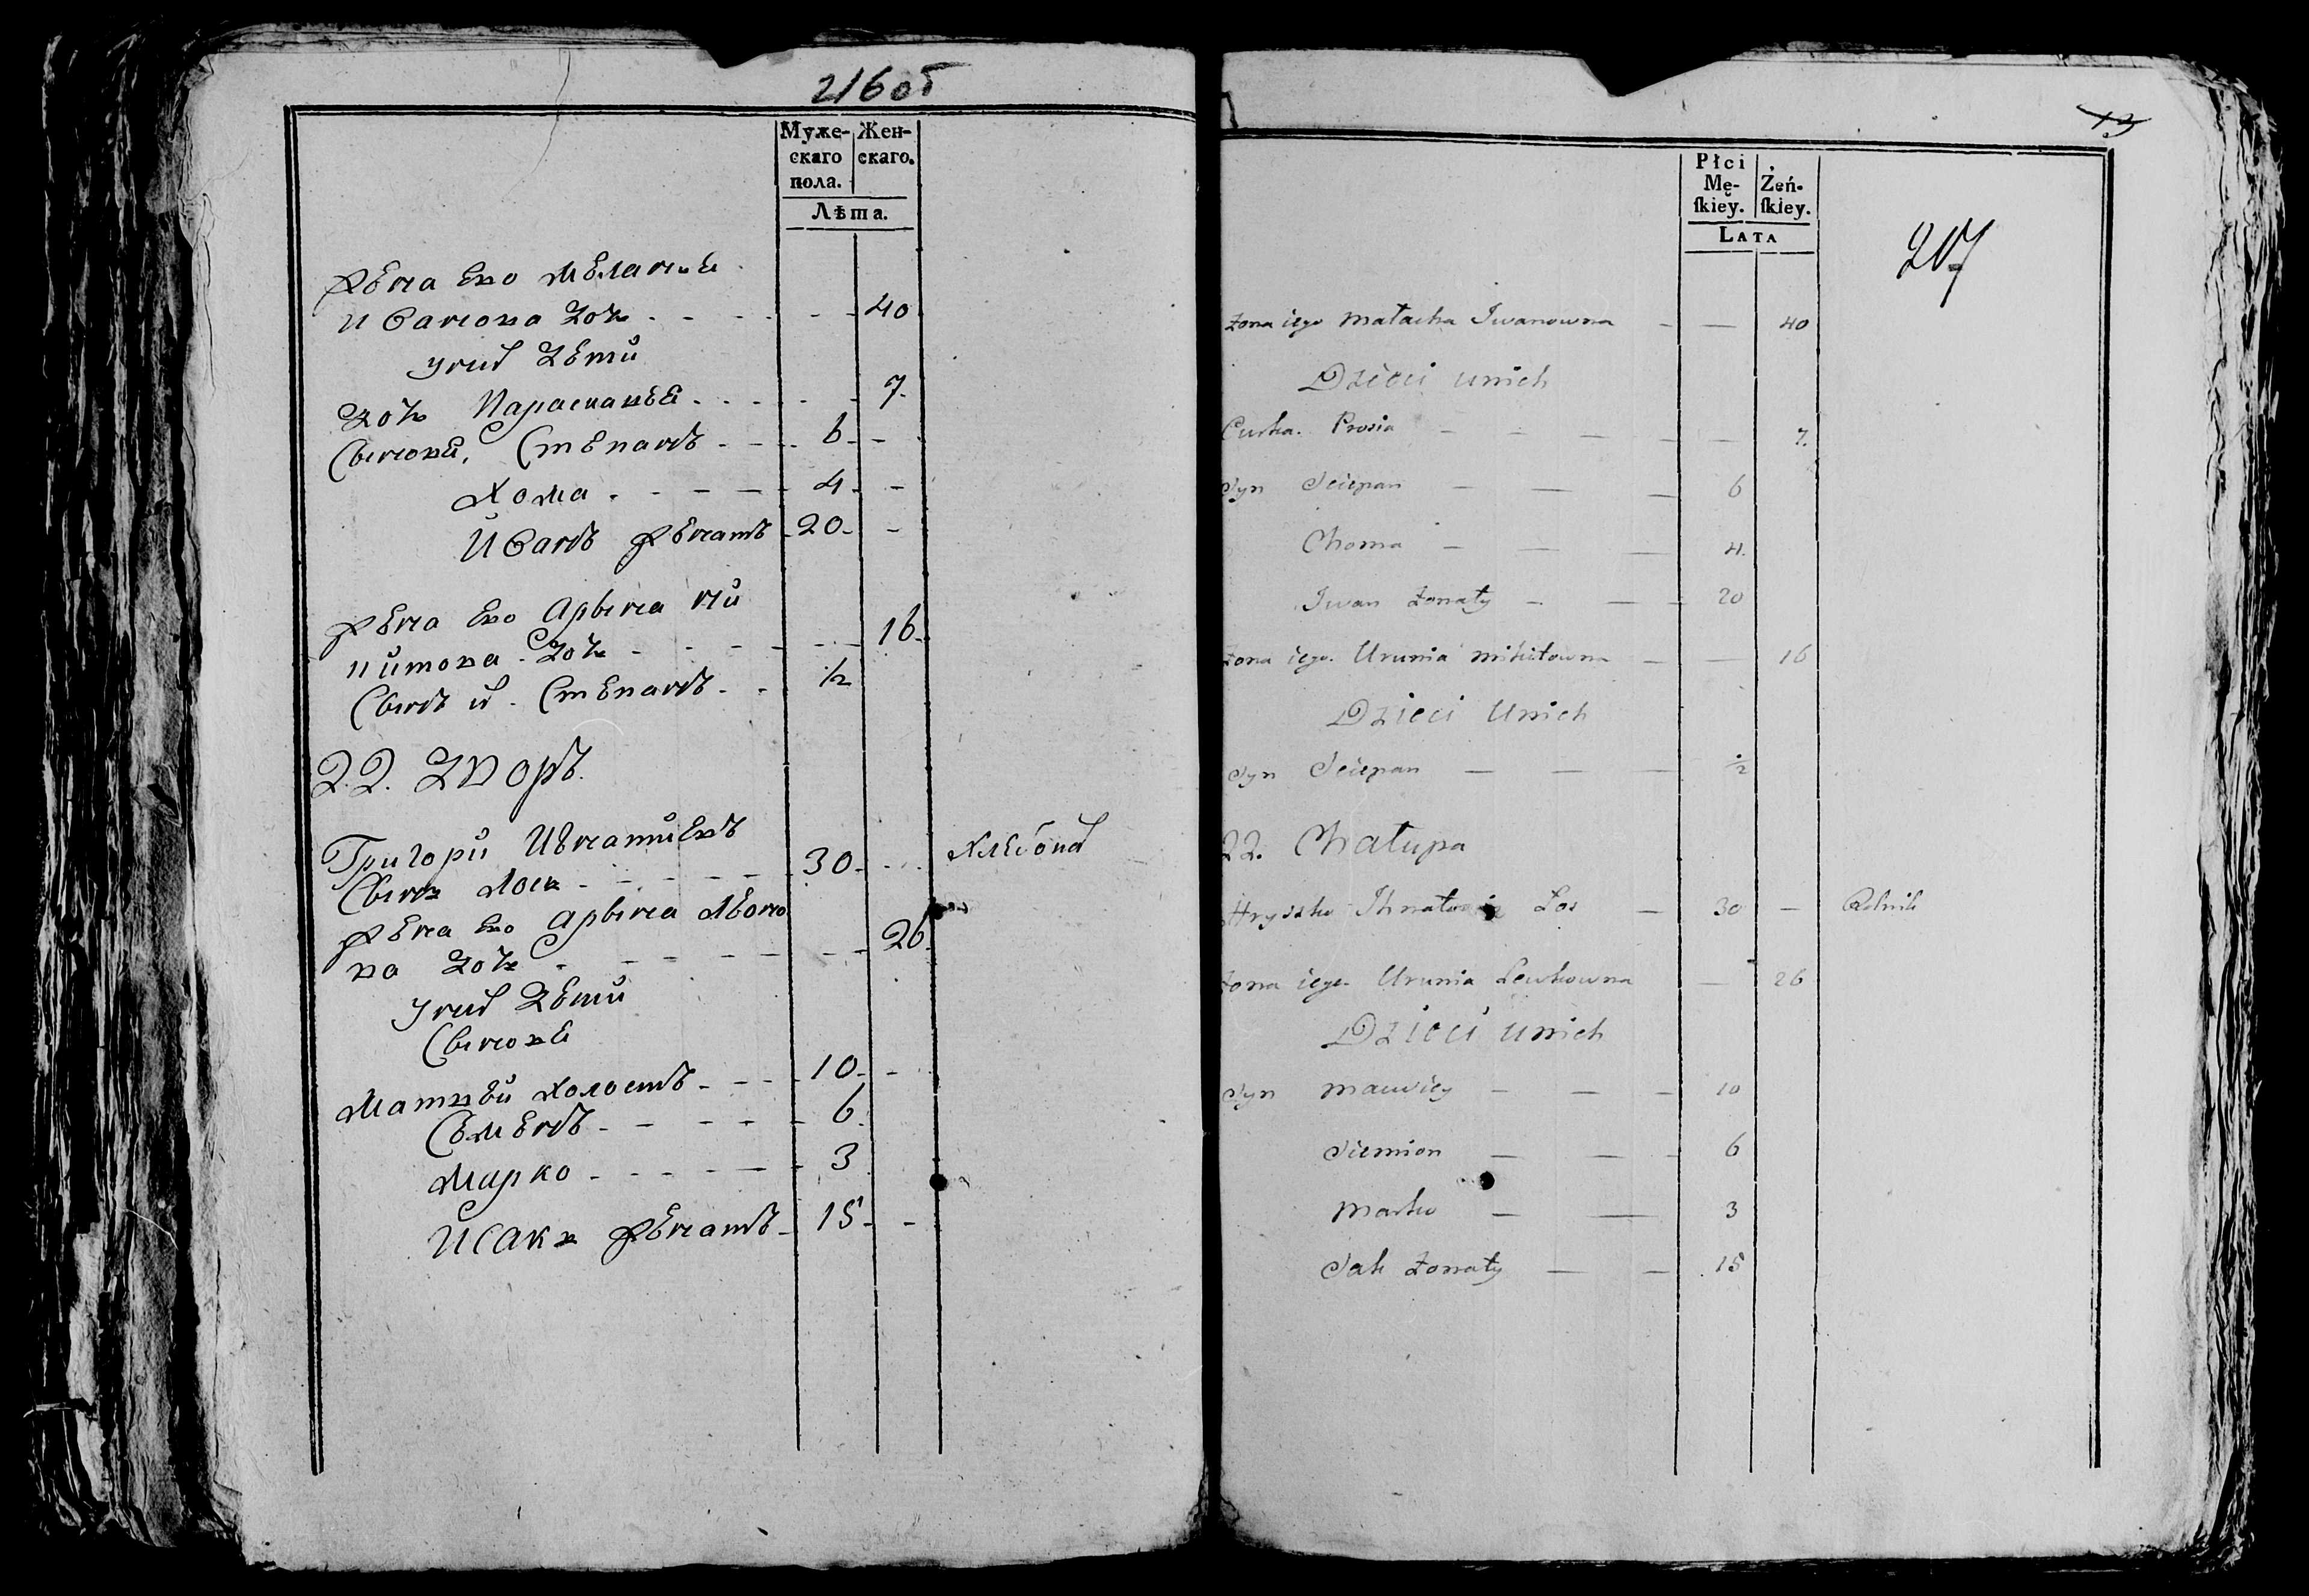 216об
Муже-
скаго
пола.
Жен-
скаго.
Лѣта.
жена Ево Меланѣя
Иванова дочь - - - - 40
у них дети
дочь Параскавея - - - 7.
Сыновя, Степанъ - - - 6 -
Хома - - - - 4 -
Иванъ женатъ 20 -
жена Ево Арына Ни
китова дочь - - - - 16
Сынъ их Степанъ - - ½
22. Дворъ.
Григори Игнатиевъ
Сынъ Лось - - - - 30 - - - Хлебопа
жена Ево Арына Левко
ва дочь - - - - 26
у них дети
Сыновя
Матвѣй холостъ - - - 10 -
Семенъ - - - - 6
Марко - - - - 3
ИСАКъ женатъ - 15 - -
13
207
Płci
Mę-
ſkiey.
Żeń-
ſkiey.
LATA
żona iego Małacha Iwanowna - — 40
Dzieci unich
Curka. Prosia - - - - - 7.
Syn Sciepan — — — 6
Choma — — — 4.
Iwan żonaty - — - 20
żona iego. Urunia Mikitowna — — 16
Dzieci Unich
Syn Sciepan — — — ½
22. Chałupa
Hryszko Ihnatowicz Łos — 30 — Rolnik
żona iego. Urunia Lewkowna — 26
Dzieci unich
Syn Maciviey — — - 10
Siemion — — - 6
Marko — — 3
Sak żonaty — — 15